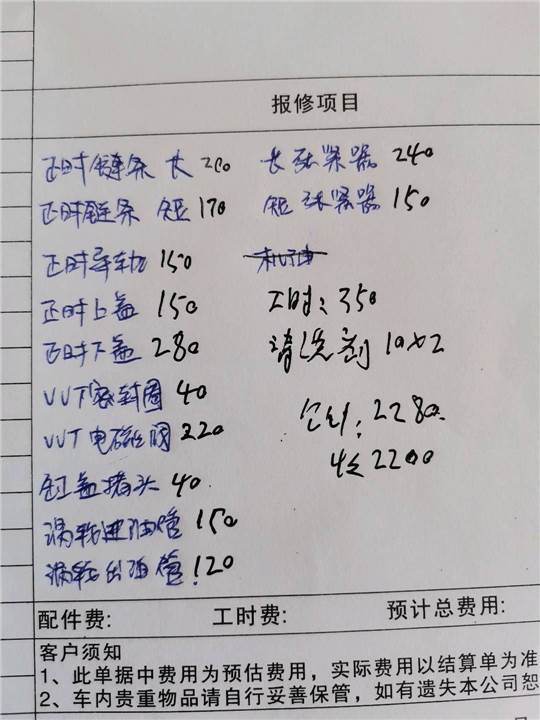 报修项目
正时链条 长 200
正时链条 短 170
正时导轨 150
正时上盖 150
正时下盖 280
VVT密封圈 40
VVT电磁阀 220
缸盖堵头 40
涡轮进油管 150
涡轮出油管 120
长张紧器 240
短张紧器 150
工时:350
清洗剂 10x2
合计:2280
收2200
配件费: 工时费: 预计总费用:
客户须知
1、此单据中费用为预估费用,实际费用以结算单为准
2、车内贵重物品请自行妥善保管,如有遗失本公司恕